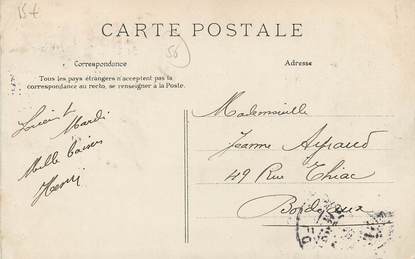 15 t
CARTE POSTALE
58
Correspondance
Adresse
Tous les pays étrangers n'acceptent pas la
correspondance au recto, se renseigner à la Poste.
Mardi
Mille baisers
Henri
Mademoiselle
Jeanne
49 Rue Thiac
Bordeaux